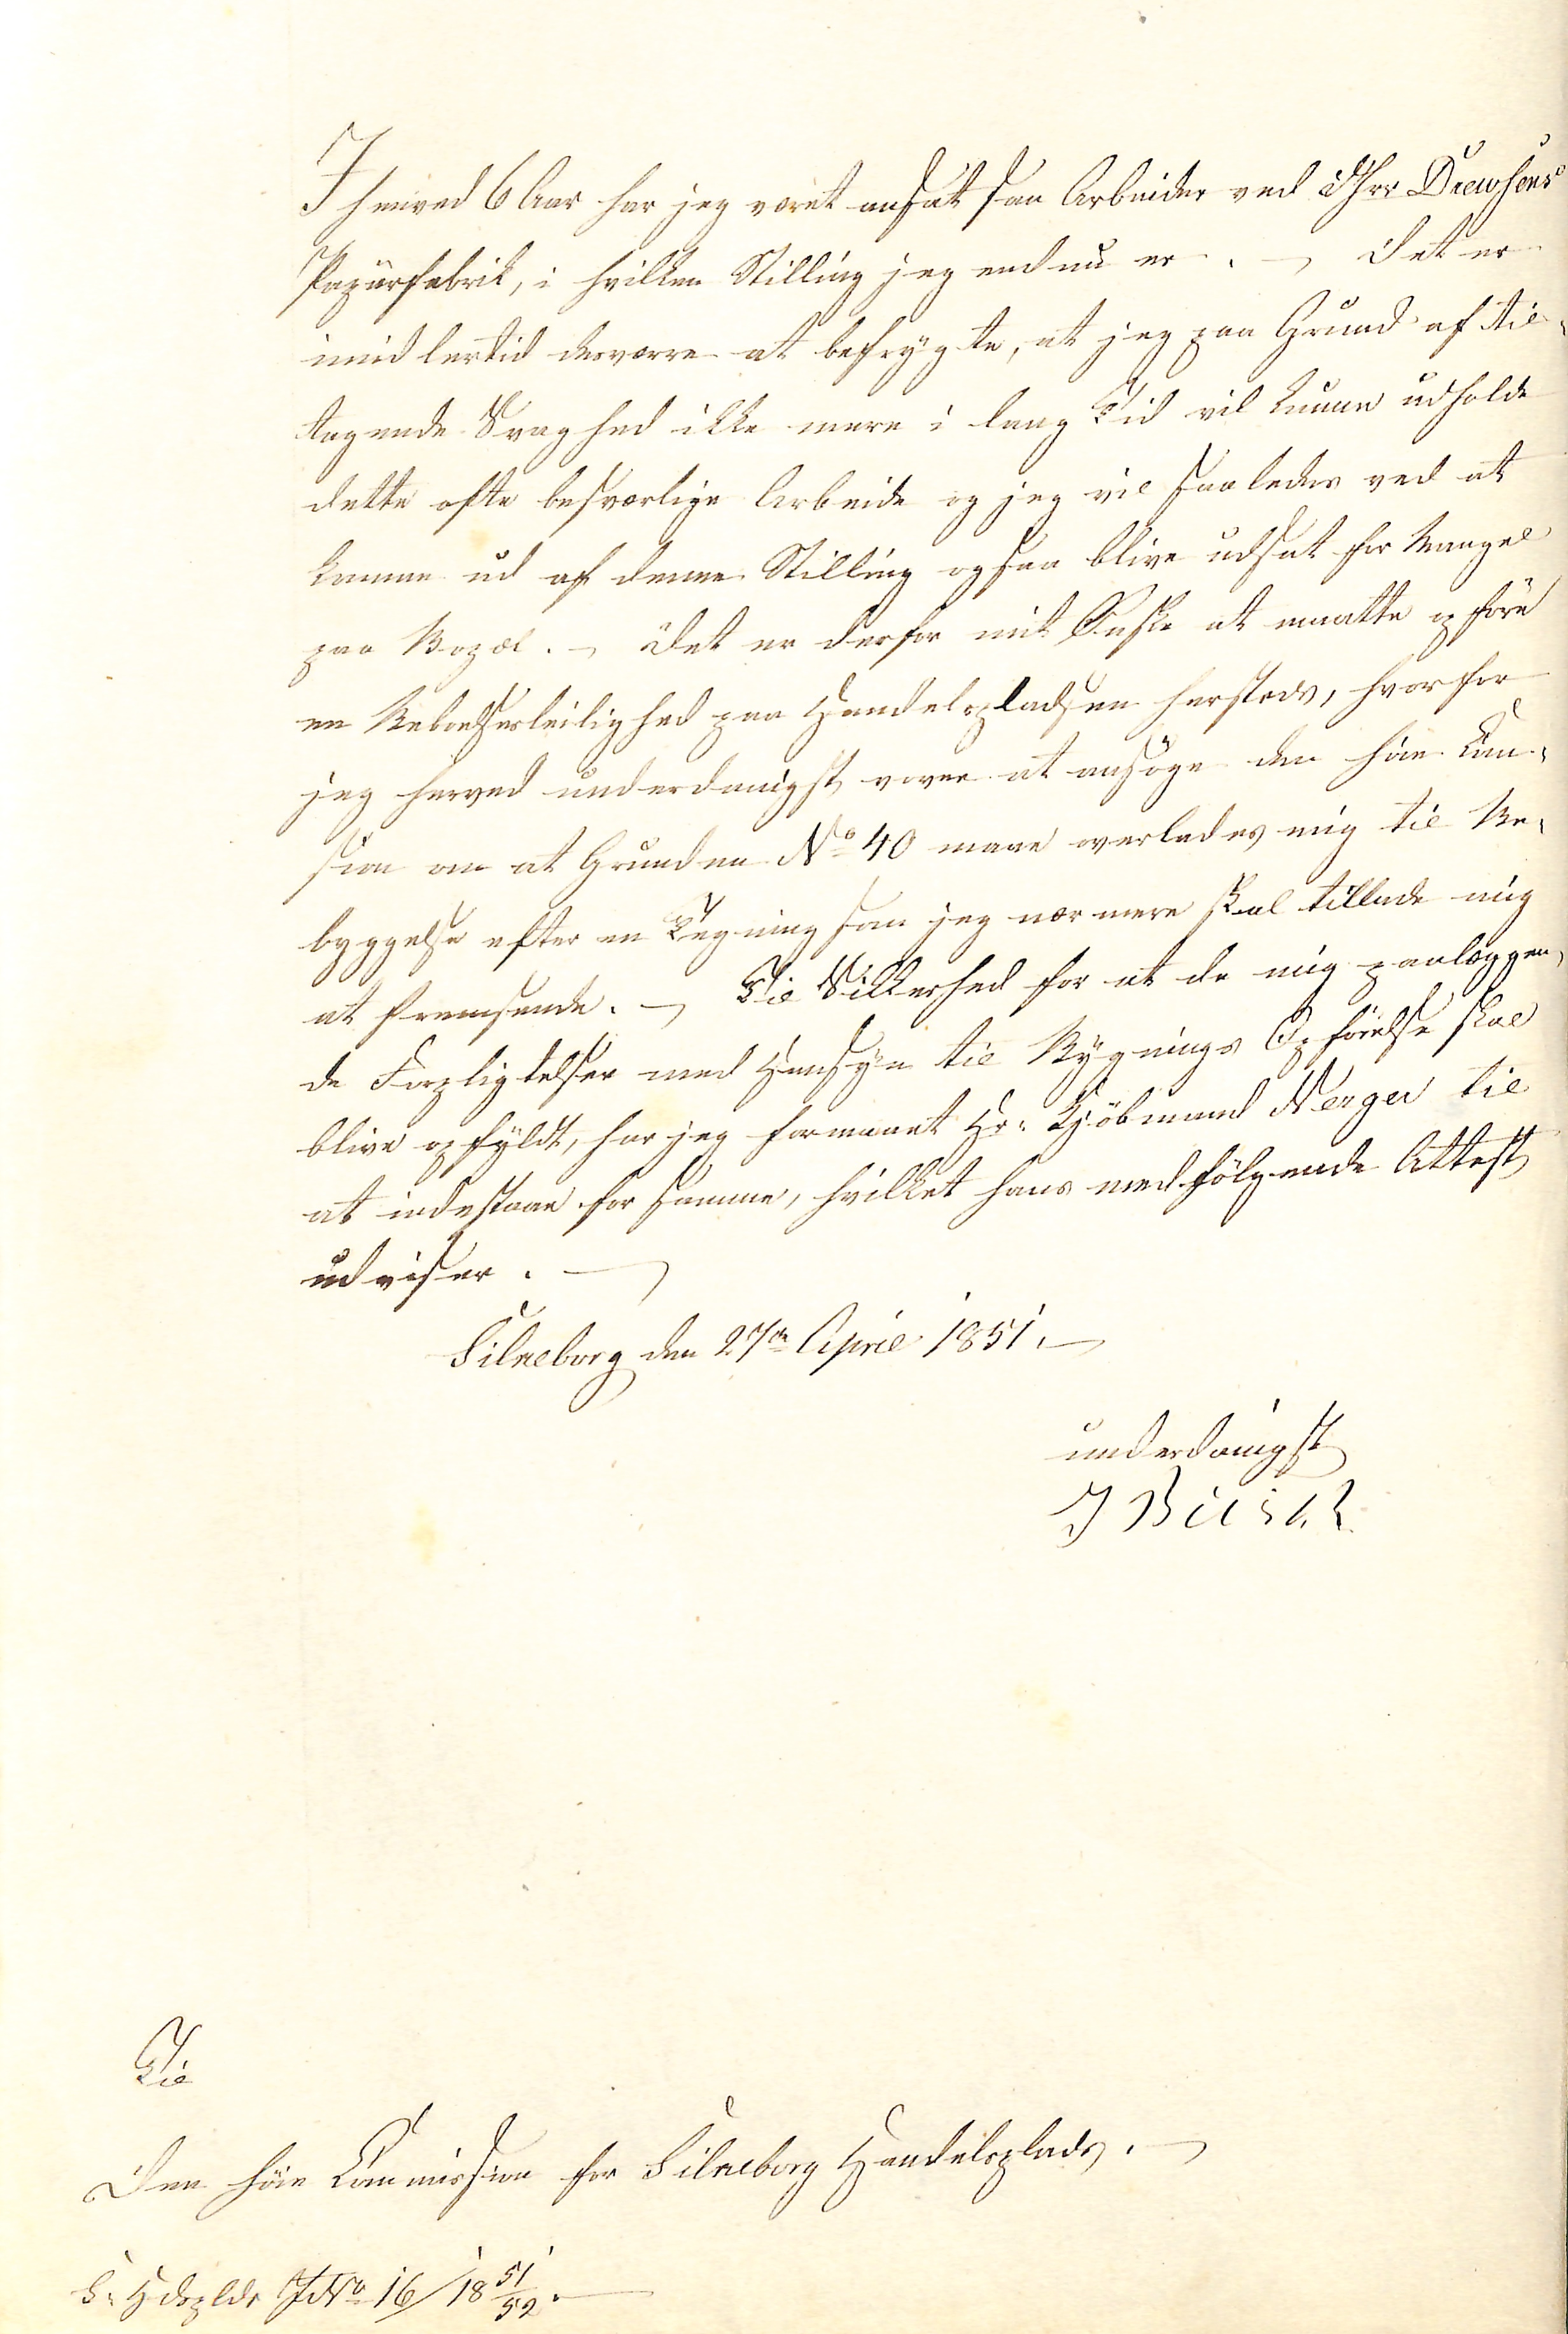 I henved 6 Aar har jeg været ansat som Arbeider ved DHrr Drewsens
Papiirfabrik, i hvilken Stilling jeg endnu er. — Det er
imidlertid desværre at befrygte, at jeg paa Grund af til-
tagende Svaghed ikke mere i lang Tid vil kunne udholde
dette ofte besværlige Arbeide og jeg vil saaledes ved at
komme ud af denne Stilling ogsaa blive udsat for Mangel
paa Bopæl. — Det er derfor mit Ønske at maatte opföre
en Beboelsesleilighed paa Handelspladsen hersteds, hvorfor
jeg herved underdanigst vover at ansöge den höie Com-
sion om at Grunden No 40 maae overlades mig til Be-
byggelse efter en Tegning som jeg nærmere skal tillade mig
at fremsende. — Til Sikkerhed for at de mig paalæggen-
de Forpligtelser med Hensyn til Bygnings Opförelse skal
blive opfyldt, har jeg formaaet Hr. Kjöbmand Nerger til
at indestaae for samme, hvilket hans medfölgende Attest
udviser. —
Silkeborg den 27de April 1851. —
underdanigst
J Busch
Til
Den höie Commission for Silkeborg Handelsplads. —
S. Hdsplds JNo 16/18 51/52. —